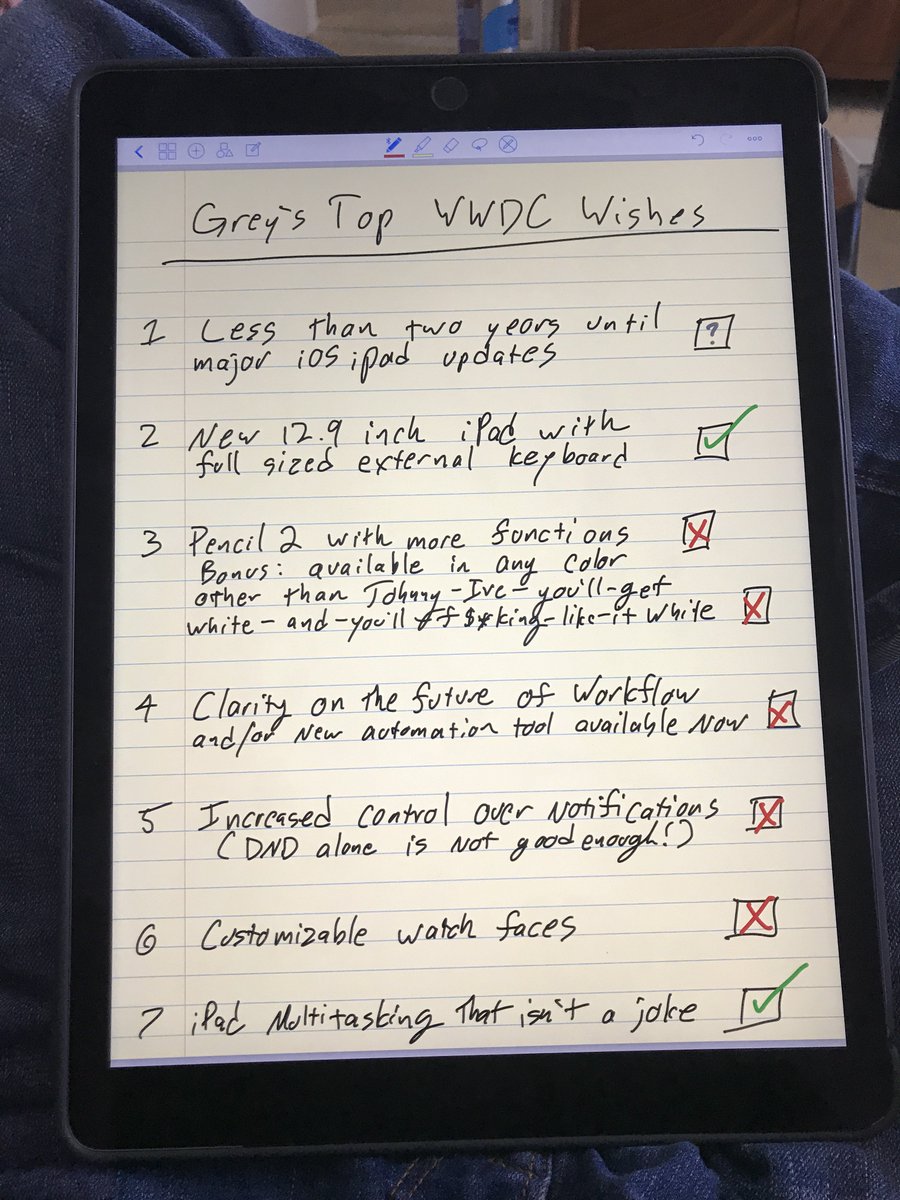 Grey's Top WWDC Wishes
1 Less than two years until
major iOS ipad updates
?
2 New 12.9 inch iPad with
full sized external keyboard
3 Pencil 2 with more functions
Bonus: available in any color
other than Johnny-Ive-you'll-get
white-and-you'll-f$*king-like-it White
4 Clarity on the future of Workflow
and/or New automation tool available Now
5 Increased control over Notifications
(DND alone is Not good enough!)
6 Customizable watch faces
7 iPad Multitasking that isn't a joke